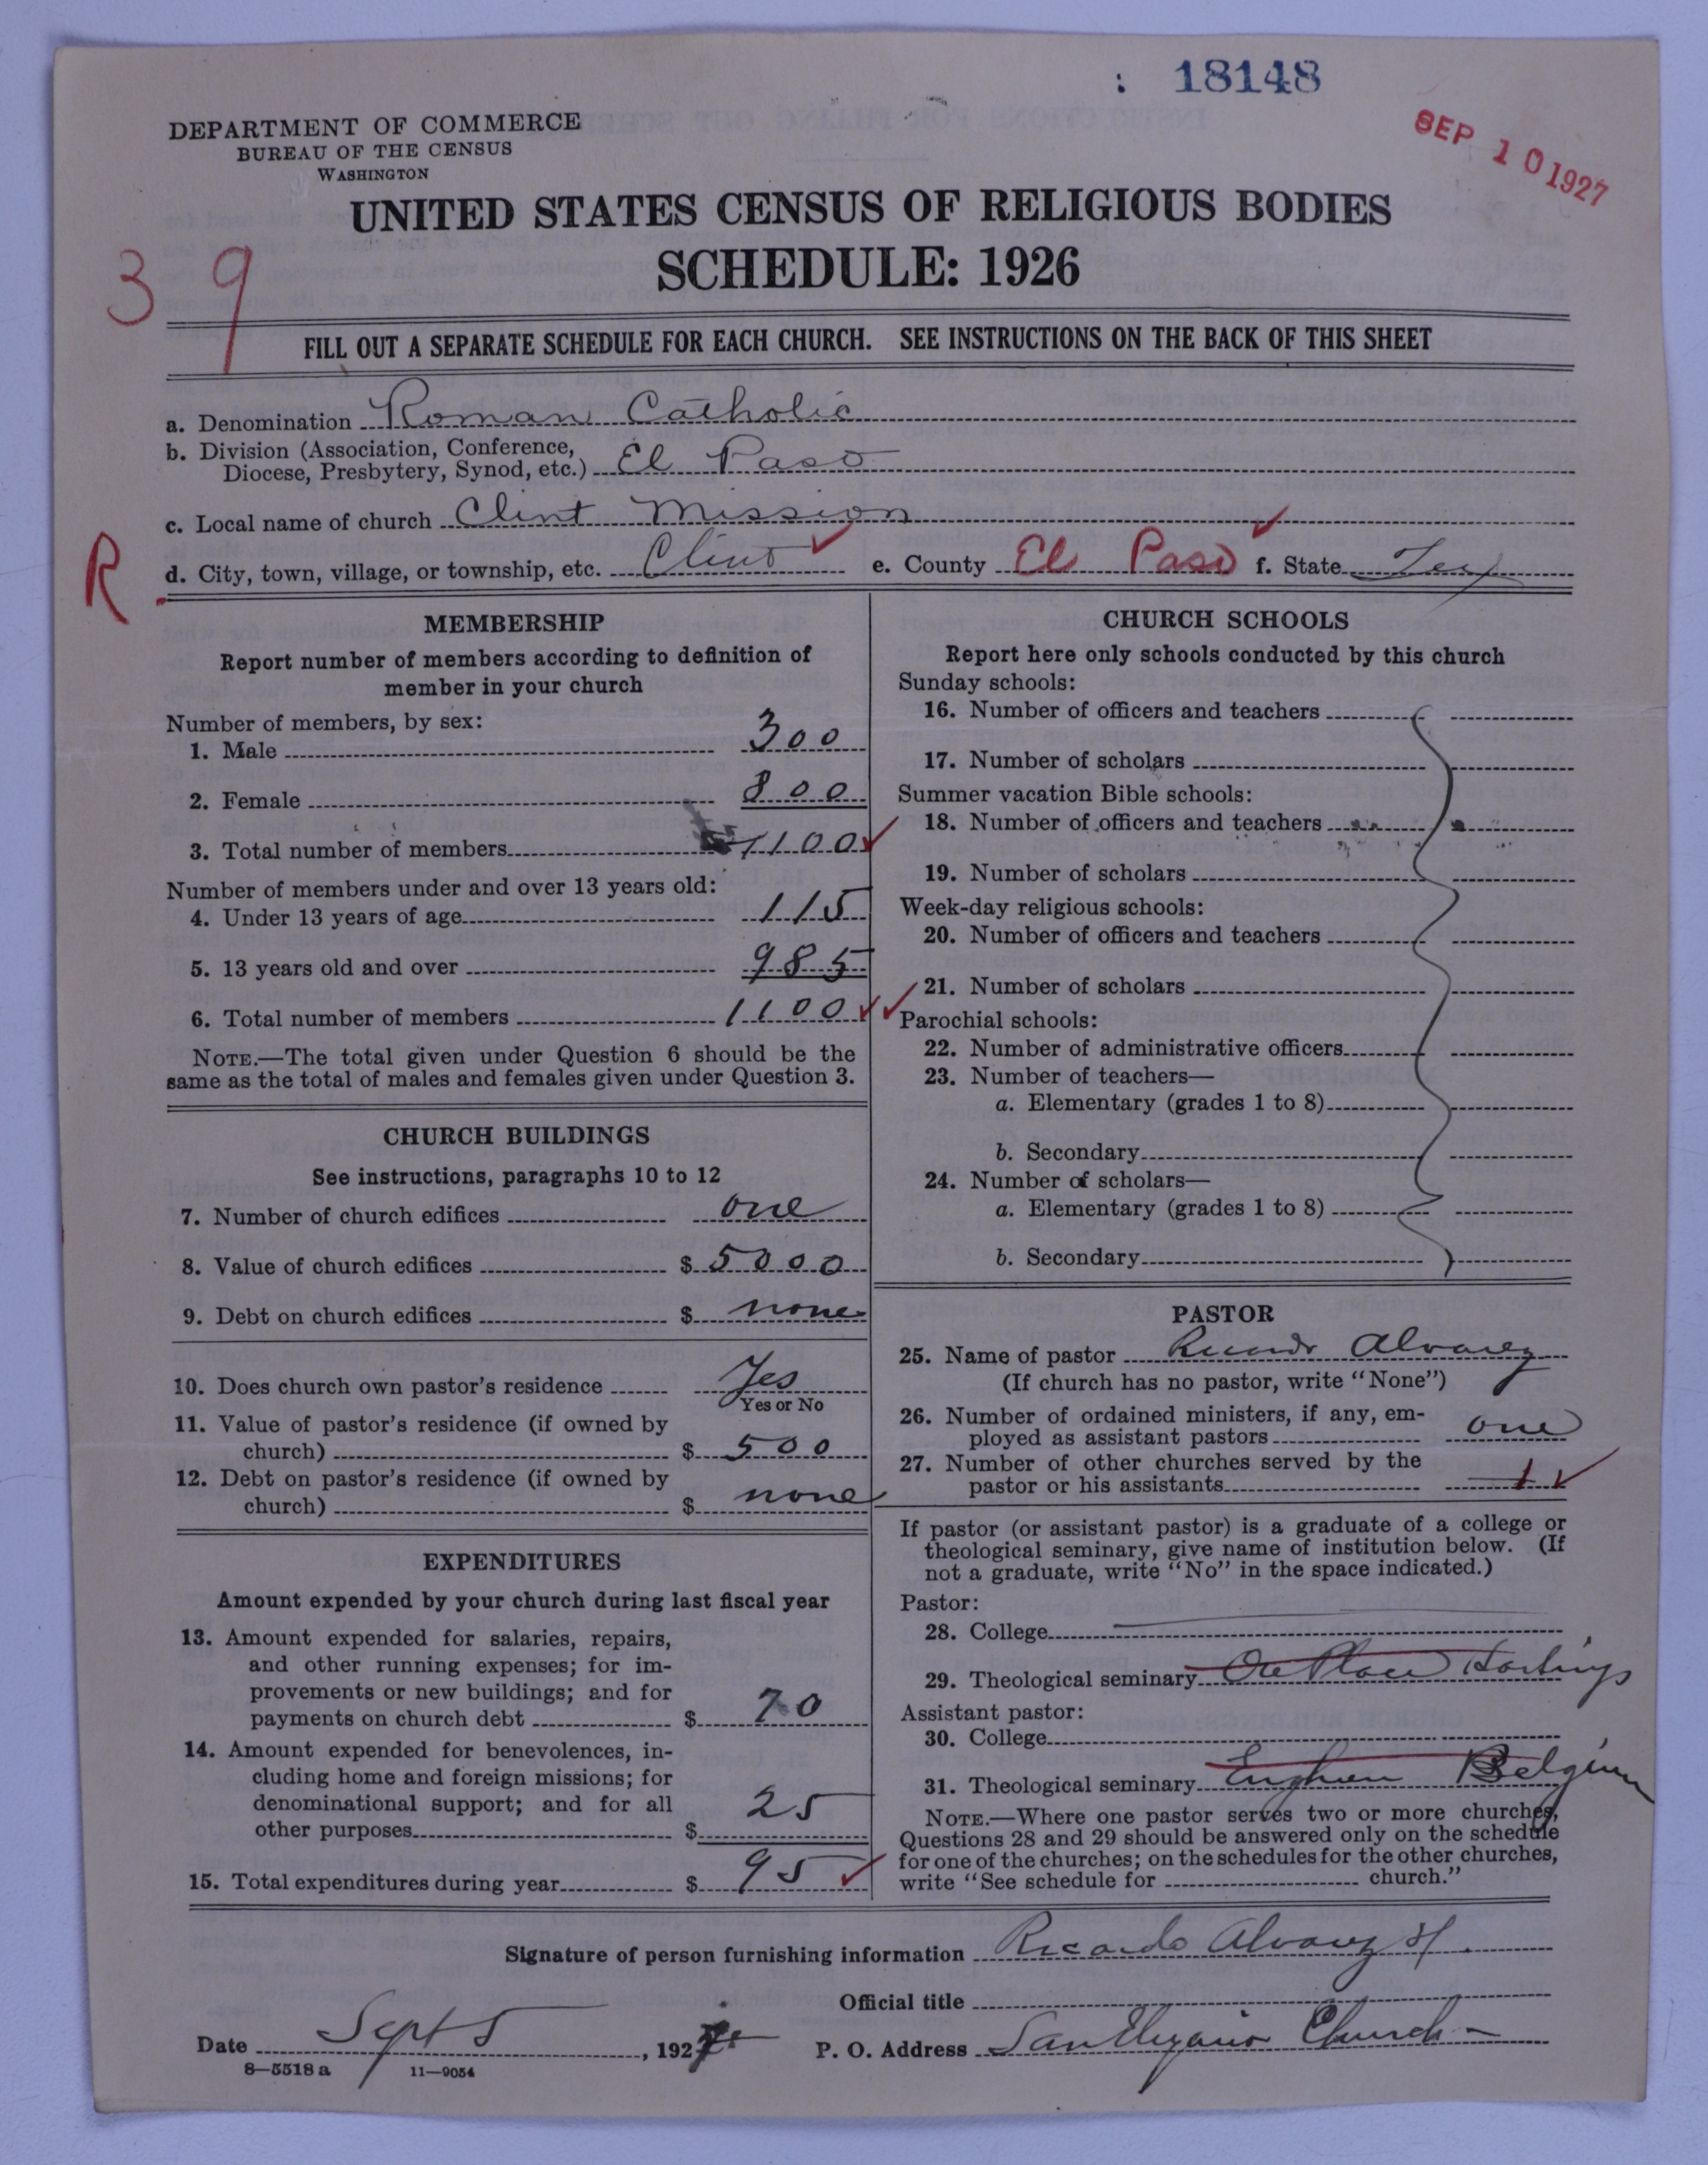 : 18148
SEP 10 1927
DEPARTMENT OF COMMERCE
BUREAU OF THE CENSUS
WASHINGTON
UNITED STATES CENSUS OF RELIGIOUS BODIES
SCHEDULE: 1926
39
FILL OUT A SEPARATE SCHEDULE FOR EACH CHURCH. SEE INSTRUCTIONS ON THE BACK OF THIS SHEET
a. Denomination Roman Catholic
b. Division (Association, Conference,
Diocese, Presbytery, Synod, etc.) El Paso
c. Local name of church Clint Mission
R
d. City, town, village, or township, etc. Clint ✓ e. County El Paso ✓ f. State Tex
MEMBERSHIP
Report number of members according to definition of
member in your church
Number of members, by sex:
1. Male 300
2. Female 800
3. Total number of members 1100 ✓
Number of members under and over 13 years old:
4. Under 13 years of age 115
5. 13 years old and over 985
6. Total number of members 1100 ✓ ✓
NOTE.—The total given under Question 6 should be the
same as the total of males and females given under Question 3.
CHURCH BUILDINGS
See instructions, paragraphs 10 to 12
7. Number of church edifices one
8. Value of church edifices $ 5000
9. Debt on church edifices $ none
10. Does church own pastor's residence Yes
Yes or No
11. Value of pastor's residence (if owned by
church) $ 500
12. Debt on pastor's residence (if owned by
church) $ none
EXPENDITURES
Amount expended by your church during last fiscal year
13. Amount expended for salaries, repairs,
and other running expenses; for im-
provements or new buildings; and for
payments on church debt $ 70
14. Amount expended for benevolences, in-
cluding home and foreign missions; for
denominational support; and for all
other purposes $ 25
15. Total expenditures during year $ 95 ✓
CHURCH SCHOOLS
Report here only schools conducted by this church
Sunday schools:
16. Number of officers and teachers
17. Number of scholars
Summer vacation Bible schools:
18. Number of officers and teachers
19. Number of scholars
Week-day religious schools:
20. Number of officers and teachers
21. Number of scholars
Parochial schools:
22. Number of administrative officers
23. Number of teachers—
a. Elementary (grades 1 to 8)
b. Secondary
24. Number of scholars—
a. Elementary (grades 1 to 8)
b. Secondary
PASTOR
25. Name of pastor Ricardo Alvarez
(If church has no pastor, write "None")
26. Number of ordained ministers, if any, em-
ployed as assistant pastors one
27. Number of other churches served by the
pastor or his assistants 1 ✓
If pastor (or assistant pastor) is a graduate of a college or
theological seminary, give name of institution below. (If
not a graduate, write "No" in the space indicated.)
Pastor:
28. College
29. Theological seminary Ore Place Hastings
Assistant pastor:
30. College
31. Theological seminary Enghien Belgium
NOTE.—Where one pastor serves two or more churches,
Questions 28 and 29 should be answered only on the schedule
for one of the churches; on the schedules for the other churches,
write "See schedule for church."
Signature of person furnishing information Ricardo Alvarez
Official title
Date Sept 5, 1927 P. O. Address San Elizario Church
8—5518 a 11—9054